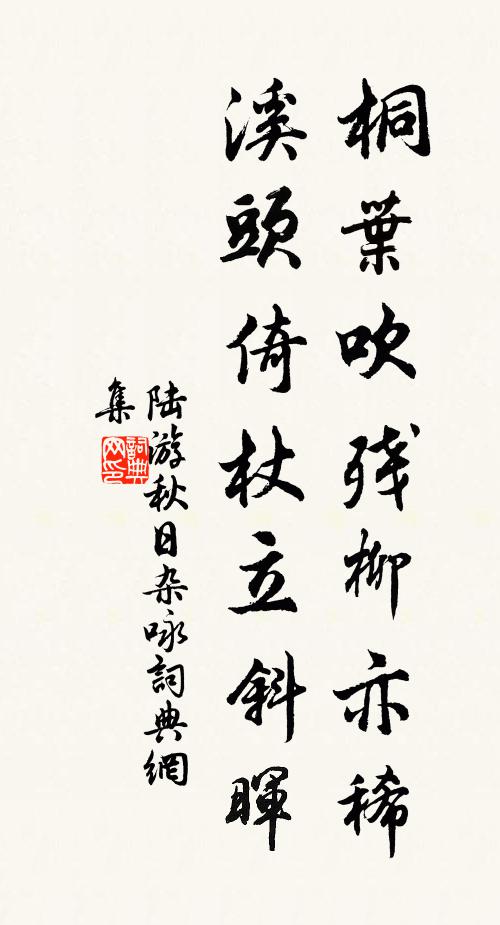 桐葉吹残柳亦稀
溪頭倚杖立斜暉
陆游秋日杂咏詞典網
集
詞典网印